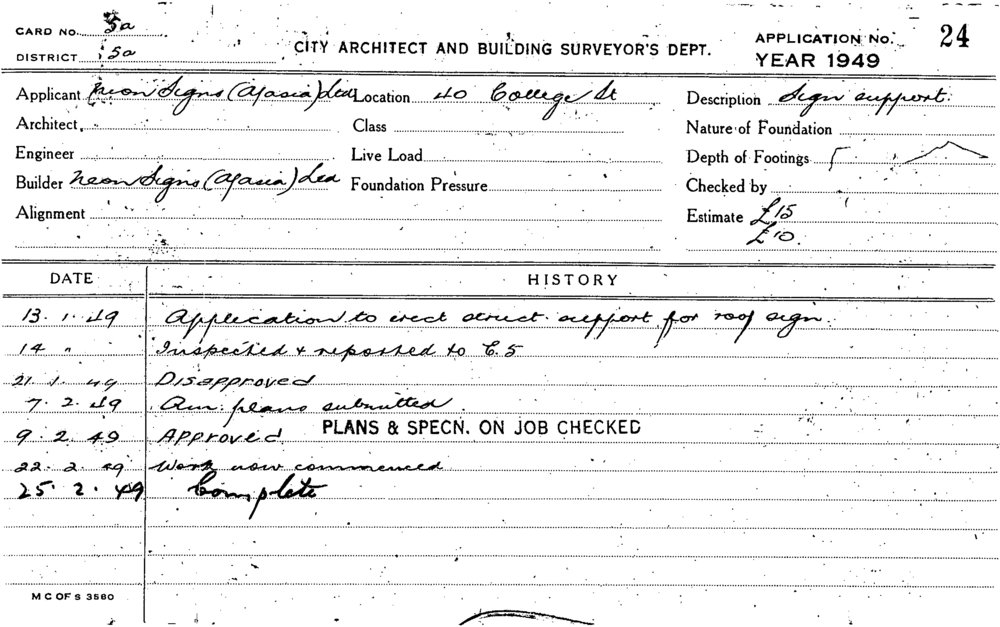 CARD NO. 5a
DISTRICT 5a
CITY ARCHITECT AND BUILDING SURVEYOR'S DEPT.
APPLICATION No. 24
YEAR 1949
Applicant Neon Signs (A/asia) Ltd Location 40 College St Description Sign support.
Architect Class Nature of Foundation
Engineer Live Load Depth of Footings
Builder Neon Signs (A/asia) Ltd Foundation Pressure Checked by
Alignment Estimate £15
£10.
DATE HISTORY
13. 1. 49 Application to erect struct. support for roof sign.
14 " Inspected & reported to C.S
21. 1. 49 Disapproved
7. 2. 49 Am. plans submitted.
9. 2. 49 Approved. PLANS & SPECN. ON JOB CHECKED
22. 2. 49 Work now commenced
25. 2. 49 Complete
M C OF S 3580